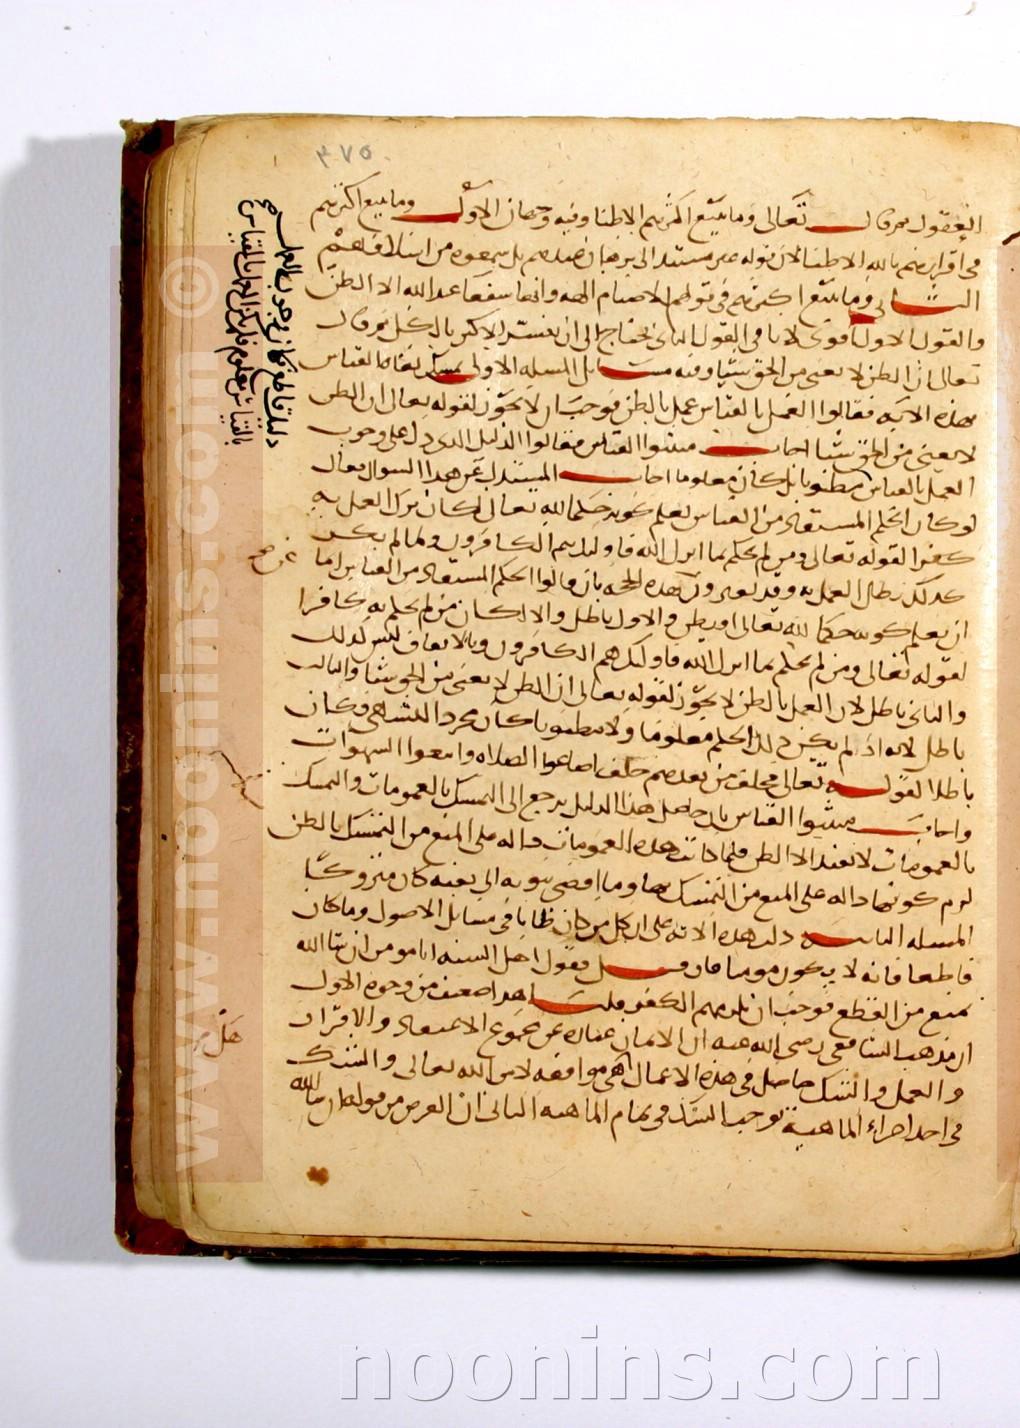 ٣٧٥
العقول ثم قال تعالى وما يتبع اكثرهم الا ظنا وفيه وجهان الاول وما يتبع اكثرهم
في اقرارهم بالله الا ظنا لان قوله غير مستند الى برهان عندهم بل سمعوه من اسلافهم
الثاني وما يتبع اكثرهم في قولهم الاصنام الهه وانها شفعا عند الله الا الظن
والقول الاول اقوى لانا في القول الثاني نحتاج الى ان نفسر الاكثر بالكل ثم قال
تعالى ان الظن لا يغنى من الحق شيا وفيه مسايل المسله الاولى تمسك نفاة القياس
بهذه الايه فقالوا العمل بالقياس عمل بالظن فوجب ان لا يجوز لقوله تعالى ان الظن
لا يغنى من الحق شيا اجاب مثبتوا القياس فقالوا الدليل الذى دل على وجوب
العمل بالقياس مظنونا بل كان معلوما اجاب المستدل عن هذا السوال فقال
لو كان الحكم المستفاد من القياس يعلم كونه حكما لله تعالى لكان ترك العمل به
كفرا لقوله تعالى ومن لم يحكم بما انزل الله فاوليك هم الكافرون ولما لم يكن
كذلك بطل العمل به وقد يعبرون عن هذه الحجه بان قالوا الحكم المستفاد من القياس اما
ان يعلم كونه حكما لله تعالى او يظن والاول باطل والا لكان من لم يحكم به كافرا
لقوله تعالى ومن لم يحكم بما انزل الله فاوليك هم الكافرون وبالاتفاق ليس كذلك
والثاني باطل لان العمل بالظن لا يجوز لقوله تعالى ان الظن لا يغنى من الحق شيا والثالث
باطل لانه اذا لم يكن ذلك الحكم معلوما ولا مظنونا كان مجرد التشهى فكان
باطلا لقوله تعالى فخلف من بعدهم خلف اضاعوا الصلاه واتبعوا الشهوات
واجاب مثبتوا القياس بان حاصل هذا الدليل يرجع الى التمسك بالعمومات والتمسك
بالعمومات لا يفيد الا الظن فلما كانت هذه العمومات داله على المنع من التمسك بالظن
لزم كونها داله على المنع من التمسك بها وما افضى ثبوته الى نفيه كان متروكا
المسله الثانيه دلت هذه الايه على ان كل من كان ظانا في مسايل الاصول وما كان
قاطعا فانه لا يكون مومنا فان قيل فقول اهل السنه انا مومن ان شا الله
يمنع من القطع فوجب ان يلزمهم الكفر قلنا هذا ضعيف من وجوه الاول
ان مذهب الشافعي رضى الله عنه ان الايمان عباره عن مجموع الاعتقاد والاقرار
والعمل والشك حاصل في هذه الاعمال هل هي موافقه لامر الله تعالى والشك
في احد اجزاء الماهية لا يوجب الشك في تمام الماهيه الثاني ان الغرض من قوله ان شا الله
دليل قاطع كان وجوب العمل
بالقياس معلوم فلم يكن العمل بالقياس
عن صح
هل
www.noonins.com ©
noonins.com